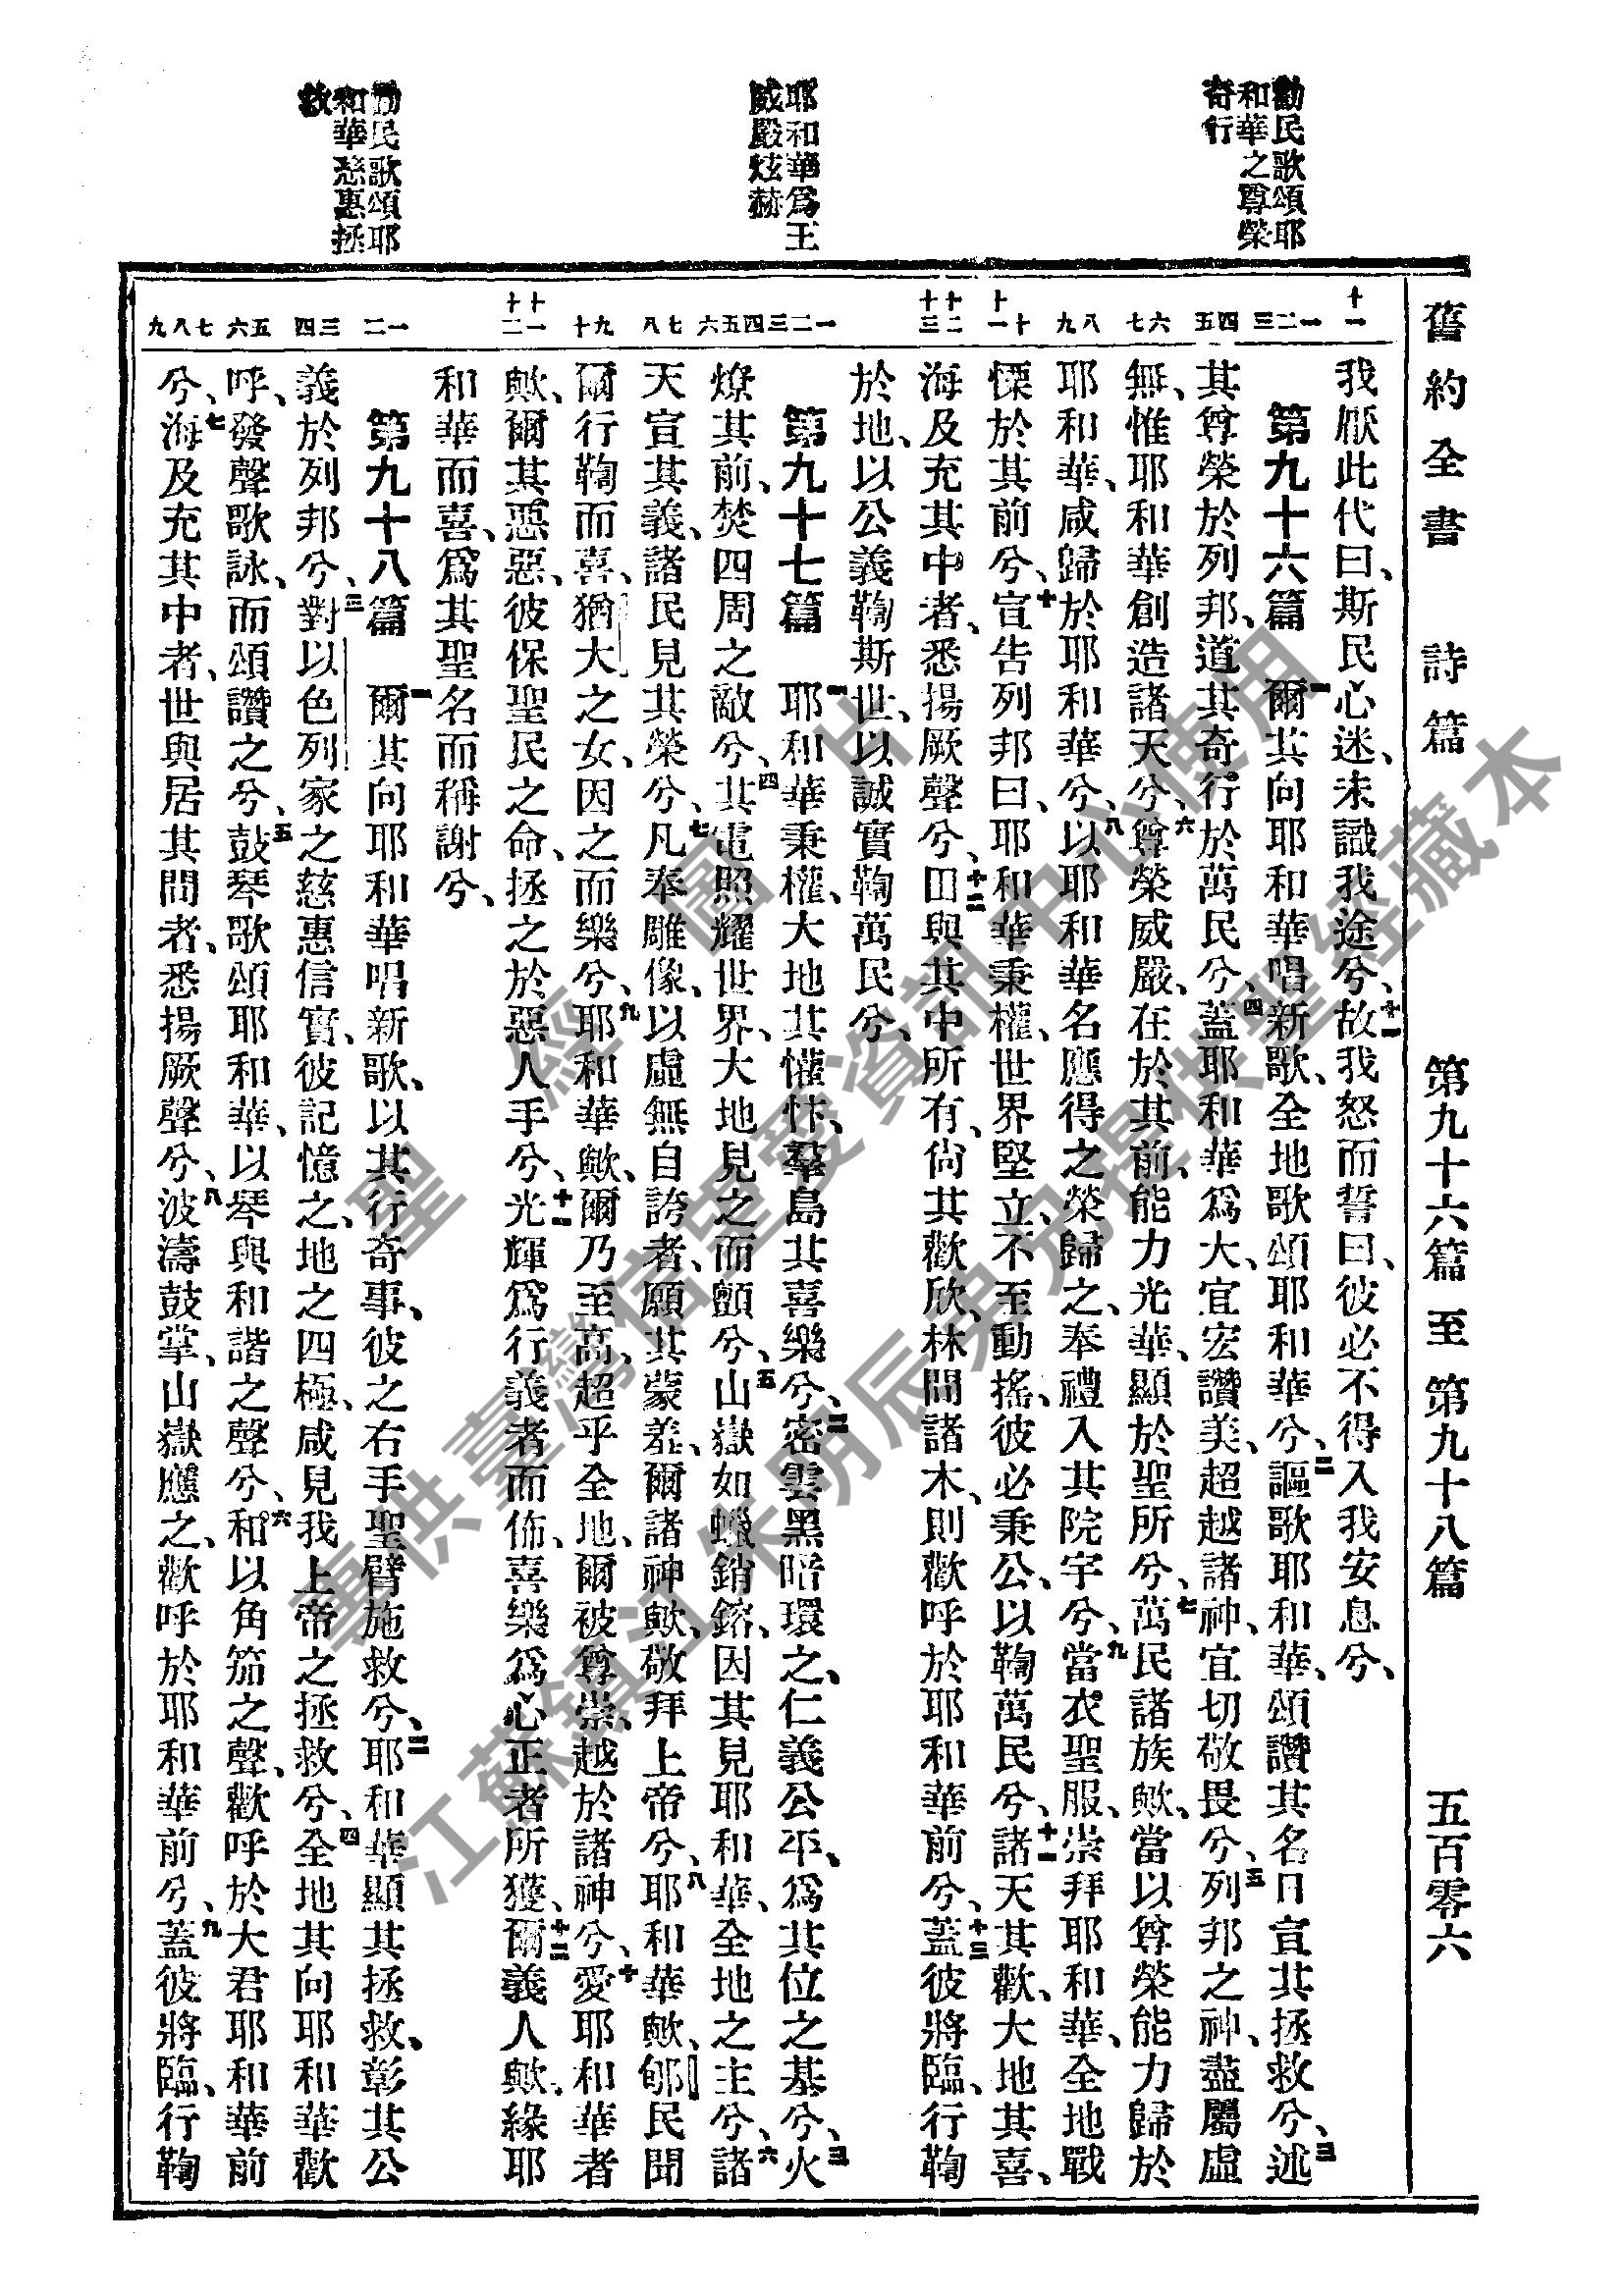 舊約全書 詩篇 第九十六篇至第九十八篇 五百零六
勸民歌頌耶
和華之尊榮
奇行
耶和華爲王
威嚴炫赫
勸民歌頌耶
和華慈惠拯
救
十一
一二三
四五
六七
八九
十十一
十二十三
一二三
四五六
七八
九十
十一十二
一二
三四
五六
七八九
我厭此代曰、斯民心迷、未識我途兮、十一故我怒而誓曰、彼必不得入我安息兮、
第九十六篇 一爾其向耶和華唱新歌、全地歌頌耶和華兮、二謳歌耶和華、頌讚其名日宣其拯救兮、三述
其尊榮於列邦、道其奇行於萬民兮、四蓋耶和華爲大、宜宏讚美、超越諸神、宜切敬畏兮、五列邦之神、盡屬虛
無、惟耶和華創造諸天兮、六尊榮威嚴、在於其前、能力光華、顯於聖所兮、七萬民諸族歟、當以尊榮能力歸於
耶和華、咸歸於耶和華兮、八以耶和華名應得之榮歸之、奉禮入其院宇兮、九當衣聖服、崇拜耶和華、全地戰
慄於其前兮、十宣告列邦曰、耶和華秉權、世界堅立、不至動搖、彼必秉公、以鞫萬民兮、十一諸天其歡、大地其喜、
海及充其中者、悉揚厥聲兮、十二田與其中所有、尙其歡欣、林間諸木、則歡呼於耶和華前兮、十三蓋彼將臨、行鞫
於地、以公義鞫斯世、以誠實鞫萬民兮、
第九十七篇 一耶和華秉權、大地其懽忭、羣島其喜樂兮、二密雲黑暗環之、仁義公平、爲其位之基兮、三火
燎其前、焚四周之敵兮、四其電照耀世界、大地見之而顫兮、五山嶽如蠟銷鎔、因其見耶和華、全地之主兮、六諸
天宣其義、諸民見其榮兮、七凡奉雕像、以虛無自誇者、願其蒙羞、爾諸神歟、敬拜上帝兮、八耶和華歟、郇民聞
爾行鞫而喜、猶大之女、因之而樂兮、九耶和華歟、爾乃至高、超乎全地、爾被尊崇、越於諸神兮、十愛耶和華者
歟、爾其惡惡、彼保聖民之命、拯之於惡人手兮、十一光輝爲行義者而佈、喜樂爲心正者所獲、十二爾義人歟、緣耶
和華而喜、爲其聖名而稱謝兮、
第九十八篇 一爾其向耶和華唱新歌、以其行奇事、彼之右手聖臂施救兮、二耶和華顯其拯救、彰其公
義於列邦兮、三對以色列家之慈惠信實、彼記憶之、地之四極、咸見我上帝之拯救兮、四全地其向耶和華歡
呼、發聲歌詠、而頌讚之兮、五鼓琴歌頌耶和華、以琴與和諧之聲兮、六和以角笳之聲、歡呼於大君耶和華前
兮、七海及充其中者、世與居其間者、悉揚厥聲兮、八波濤鼓掌、山嶽應之、歡呼於耶和華前兮、九蓋彼將臨、行鞫
聖經圖片
專供臺灣信望愛資訊中心使用
江蘇鎮江朱明辰弟兄提供聖經藏本